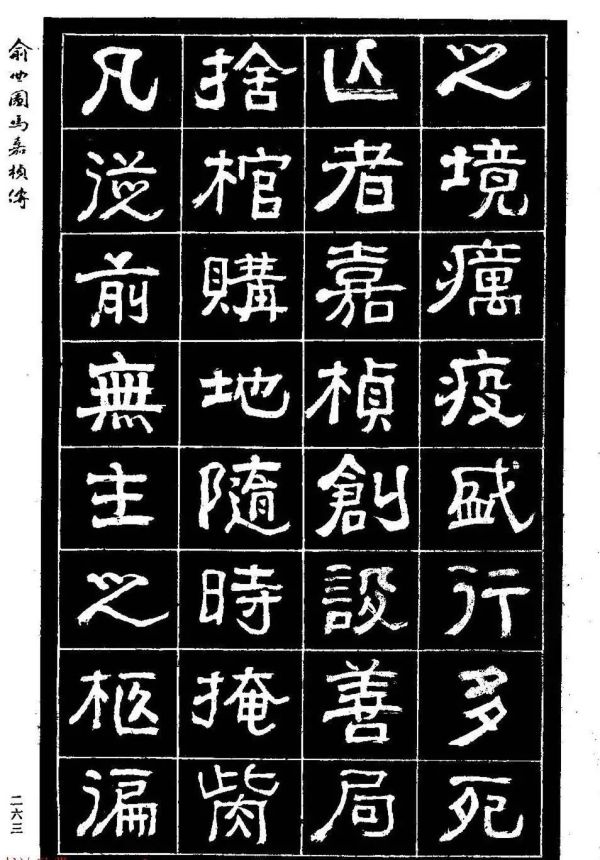 之境癘疫盛行多死
亾者嘉楨創設善局
捨棺購地隨時掩胔
凡從前無主之柩徧
俞曲園馬嘉楨傳
二六三